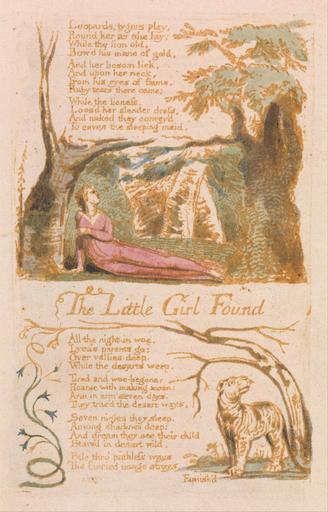 Leopards, tygers play,
Round her as she lay;
While the lion old,
Bow'd his mane of gold,
And her bosom lick,
And upon her neck,
From his eyes of flame,
Ruby tears there came;
While the lioness
Loos'd her slender dress,
And naked they convey'd
To caves the sleeping maid.
The Little Girl Found
All the night in woe,
Lyca's parents go:
Over vallies deep,
While the desarts weep.
Tired and woe-begone,
Hoarse with making moan:
Arm in arm seven days,
They trac'd the desart ways.
Seven nights they sleep,
Among shadows deep:
And dream they see their child
Starv'd in desart wild.
Pale thro' pathless ways
The fancied image strays,
Famish'd